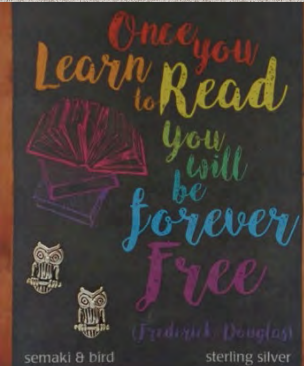 Once you
Learn
to Read
you
will
be
forever
Free
(Frederick Douglas)
semaki & bird sterling silver